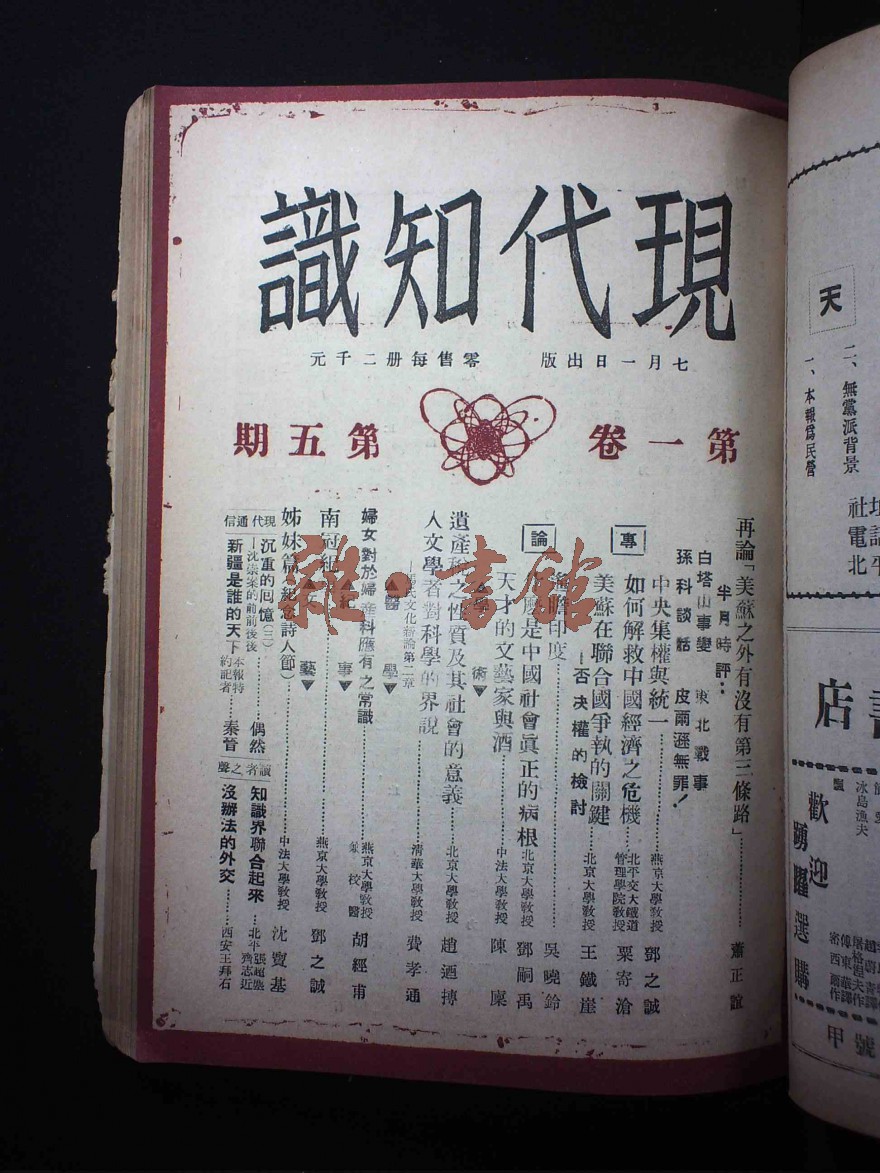 現代知識
七月一日出版　零售每册二千元
第一卷　第五期
再論「美蘇之外有沒有第三條路」…………蕭正誼
半月時評：
白塔山事變　東北戰事
孫科談話　皮爾遜無罪！
專
論
中央集權與統一…………燕京大學教授　鄧之誠
如何解救中國經濟之危機…………北平交大鐵道管理學院教授　粟寄滄
美蘇在聯合國爭執的關鍵
—否决權的檢討…………北京大學教授　王鐵崖
印度…………吳曉鈴
是中國社會眞正的病根…………北京大學教授　鄧嗣禹
天才的文藝家與酒…………中法大學教授　陳　廩
學術
遺產稅之性質及其社會的意義…………北京大學教授　趙迺摶
人文學者對科學的界說
文化新論第二章…………清華大學教授　費孝通
醫學
婦女對於婦產科應有之常識…………燕京大學教授兼校醫　胡經甫
紀事
南冠紀…………燕京大學教授　鄧之誠
藝
姊妹篇（紀念詩人節）…………中法大學教授　沈寶基
現代通信
沉重的回憶（三）
—沈崇案的前前後後…………偶然
新疆是誰的天下　本報特約記者…………秦晉
讀者之聲
知識界聯合起來…………北平　張超塵　齊志近
沒辦法的外交…………西安王拜石
雜·書館
天
二、無黨派背景
一、本報爲民營
社址
電話
北平
書店
冰島漁夫
歡迎
踴躍選購
屠格涅夫作
傅東華譯
密西爾作
甲號